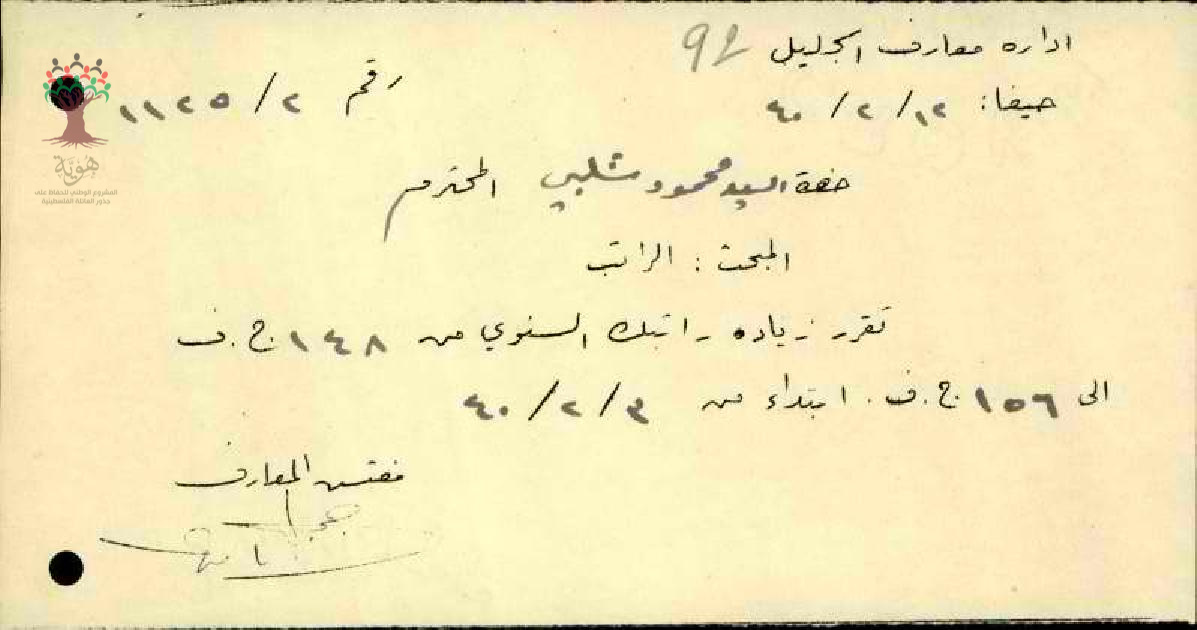 اداره معارف الجليل 92
حيفا: ١٢/٢/٤٠
رقم ٢/١١٢٥
حضرة السيد محمود شلبي المحترم
المبحث: الراتب
تقرر زياده راتبك السنوي من ١٤٨ ج.ف
الى ١٥٦ ج.ف. ابتداء من ٣/٢/٤٠
مفتش المعارف
هوية
المشروع الوطني للحفاظ على
جذور العائلة الفلسطينية